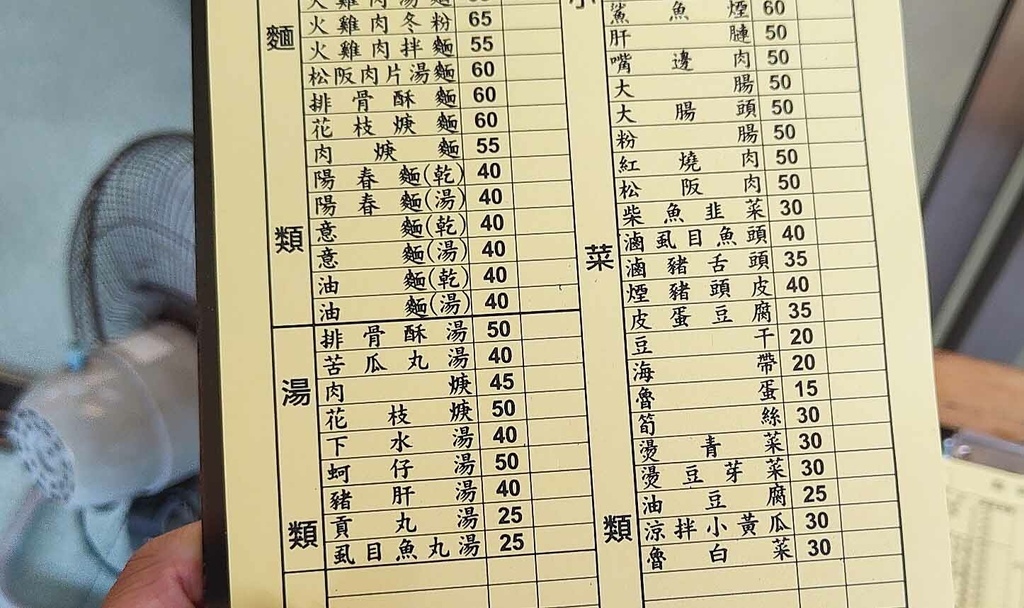 麵類
火雞肉冬粉 65
火雞肉拌麵 55
松阪肉片湯麵 60
排骨酥麵 60
花枝焿麵 60
肉焿麵 55
陽春麵(乾) 40
陽春麵(湯) 40
意麵(乾) 40
意麵(湯) 40
油麵(乾) 40
油麵(湯) 40
湯類
排骨酥湯 50
苦瓜丸湯 40
肉焿 45
花枝焿 50
下水湯 40
蚵仔湯 50
豬肝湯 40
貢丸湯 25
虱目魚丸湯 25
小菜類
鯊魚煙 60
肝腱 50
嘴邊肉 50
大腸 50
大腸頭 50
粉腸 50
紅燒肉 50
松阪肉 50
柴魚韭菜 30
滷虱目魚頭 40
滷豬舌頭 35
煙豬頭皮 40
皮蛋豆腐 35
豆干 20
海帶 20
魯蛋 15
筍絲 30
燙青菜 30
燙豆芽菜 30
油豆腐 25
涼拌小黃瓜 30
魯白菜 30